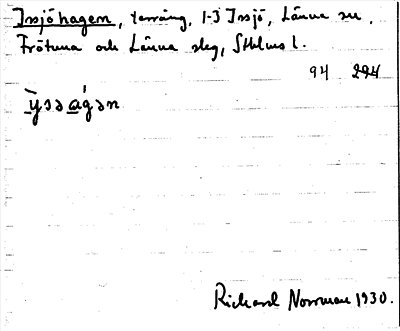 Issjöhagen, terräng, 1-3 Issjö, Länna sn,
Frötuna och Länna skg, Sthlms l.
94 294
ỳsəagən
Richard Norrman 1930.